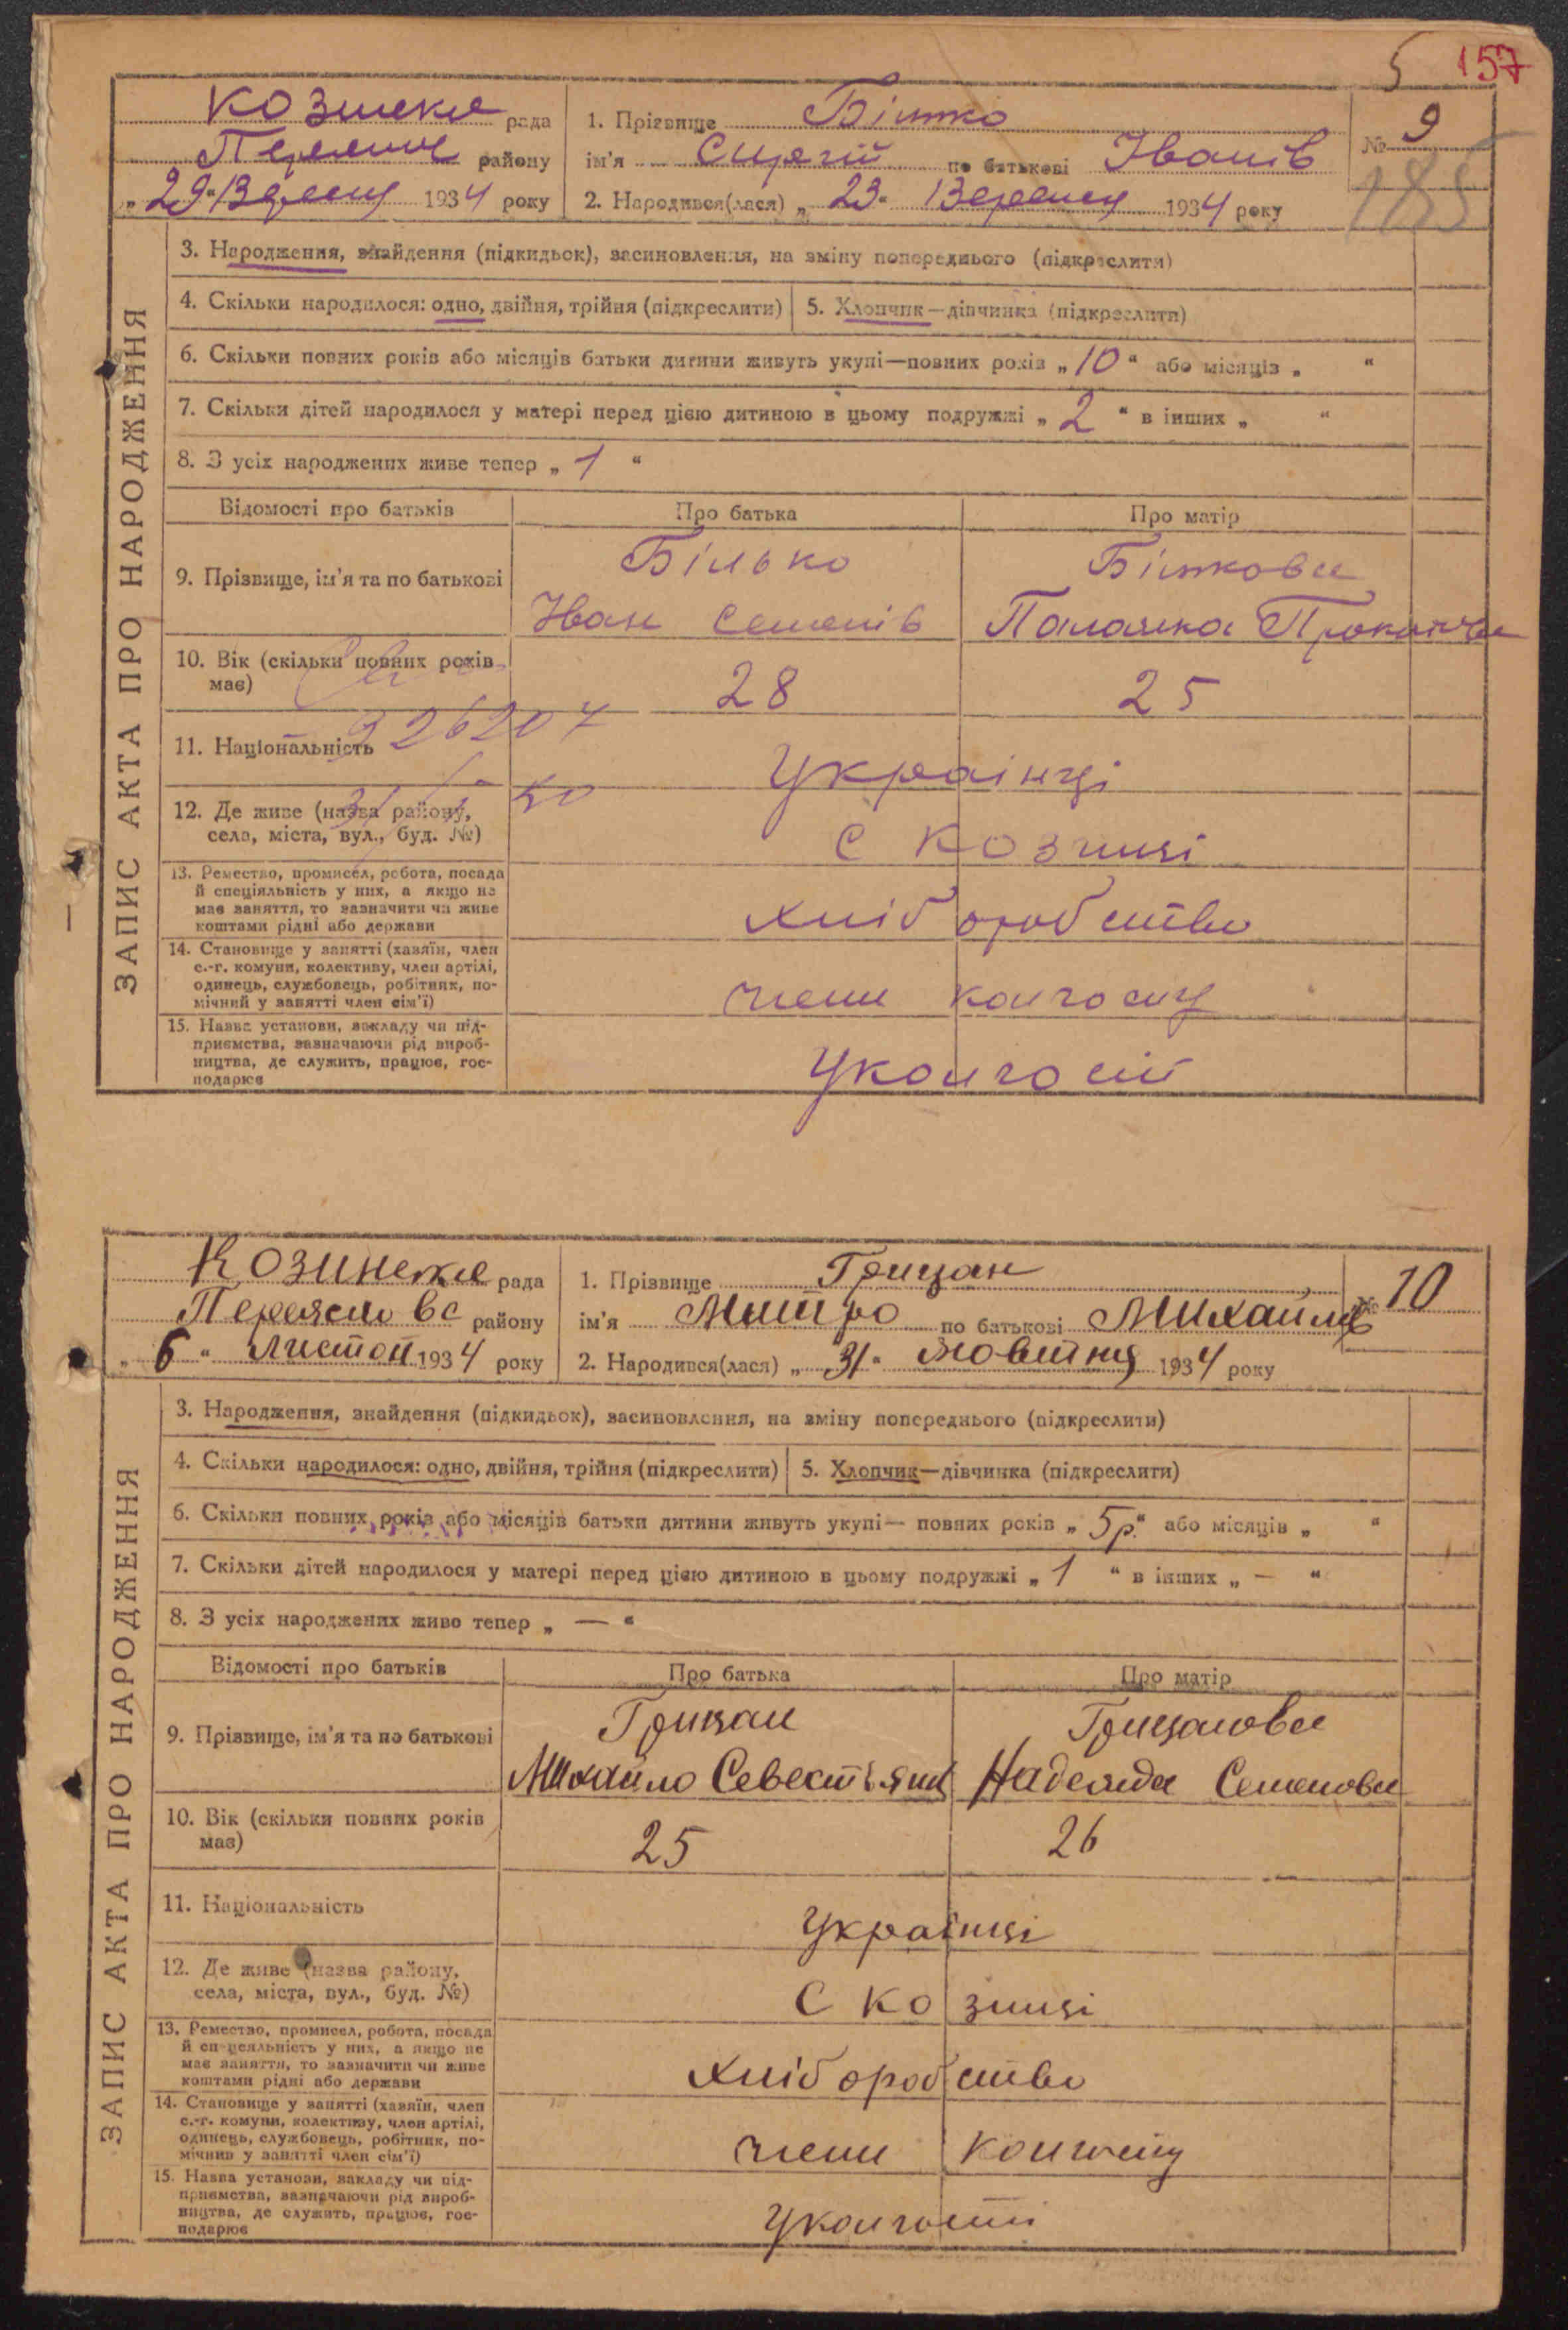 5 157
Козинська рада
Переясл району
„ 29 “ Вересня 1934 року
1. Прізвище Білько
ім'я Сиргій по батькові Іванів
2. Народився(лася) „ 23 “ Вересня 1934 року
№ 9
185
ЗАПИС АКТА ПРО НАРОДЖЕННЯ
3. Народження, знайдення (підкидьок), засиновлення, на зміну попереднього (підкреслити)
4. Скільки народилося: одно, двійня, трійня (підкреслити)
5. Хлопчик—дівчинка (підкреслити)
6. Скільки повних років або місяців батьки дитини живуть укупі—повних років „ 10 “ або місяців „ “
7. Скільки дітей народилося у матері перед цією дитиною в цьому подружжі „ 2 “ в інших „ “
8. З усіх народжених живе тепер „ 1 “
Відомості про батьків
Про батька
Про матір
9. Прізвище, ім'я та по батькові
Білько
Іван Семенів
Бількова
Палажка Прокопова
10. Вік (скільки повних років
має)
28
25
11. Національність
326207
Українці
12. Де живе (назва району,
села, міста, вул., буд. №)
50
с Козинці
13. Ремество, промисел, робота, посада
й спеціяльність у них, а якщо не
має заняття, то зазначити чи живе
коштами рідні або держави
хліборобство
14. Становище у занятті (хазяїн, член
с.-г. комуни, колективу, член артілі,
одинець, службовець, робітник, по-
мічний у занятті член сім'ї)
члени колгоспу
15. Назва установи, закладу чи під-
приємства, зазначаючи рід вироб-
ництва, де служить, працює, гос-
подарює
Уколгоспі
Козинська рада
Переяславс району
„ 6 “ Листоп 1934 року
1. Прізвище Грицан
ім'я Митро по батькові Михайлів
2. Народився(лася) „ 31 “ Жовтня 1934 року
№ 10
ЗАПИС АКТА ПРО НАРОДЖЕННЯ
3. Народження, знайдення (підкидьок), засиновлення, на зміну попереднього (підкреслити)
4. Скільки народилося: одно, двійня, трійня (підкреслити)
5. Хлопчик—дівчинка (підкреслити)
6. Скільки повних років або місяців батьки дитини живуть укупі— повних років „ 5р. “ або місяців „ “
7. Скільки дітей народилося у матері перед цією дитиною в цьому подружжі „ 1 “ в інших „ — “
8. З усіх народжених живе тепер „ — “
Відомості про батьків
Про батька
Про матір
9. Прізвище, ім'я та по батькові
Грицан
Михайло Севестьянів
Грицанова
Надежда Семенова
10. Вік (скільки повних років
має)
25
26
11. Національність
Українці
12. Де живе (назва району,
села, міста, вул., буд. №)
с Козинці
13. Ремество, промисел, робота, посада
й спеціяльність у них, а якщо не
має заняття, то зазначити чи живе
коштами рідні або держави
хліборобство
14. Становище у занятті (хазяїн, член
с.-г. комуни, колективу, член артілі,
одинець, службовець, робітник, по-
мічний у занятті член сім'ї)
члени колгоспу
15. Назва установи, закладу чи під-
приємства, зазначаючи рід вироб-
ництва, де служить, працює, гос-
подарює
Уколгоспі